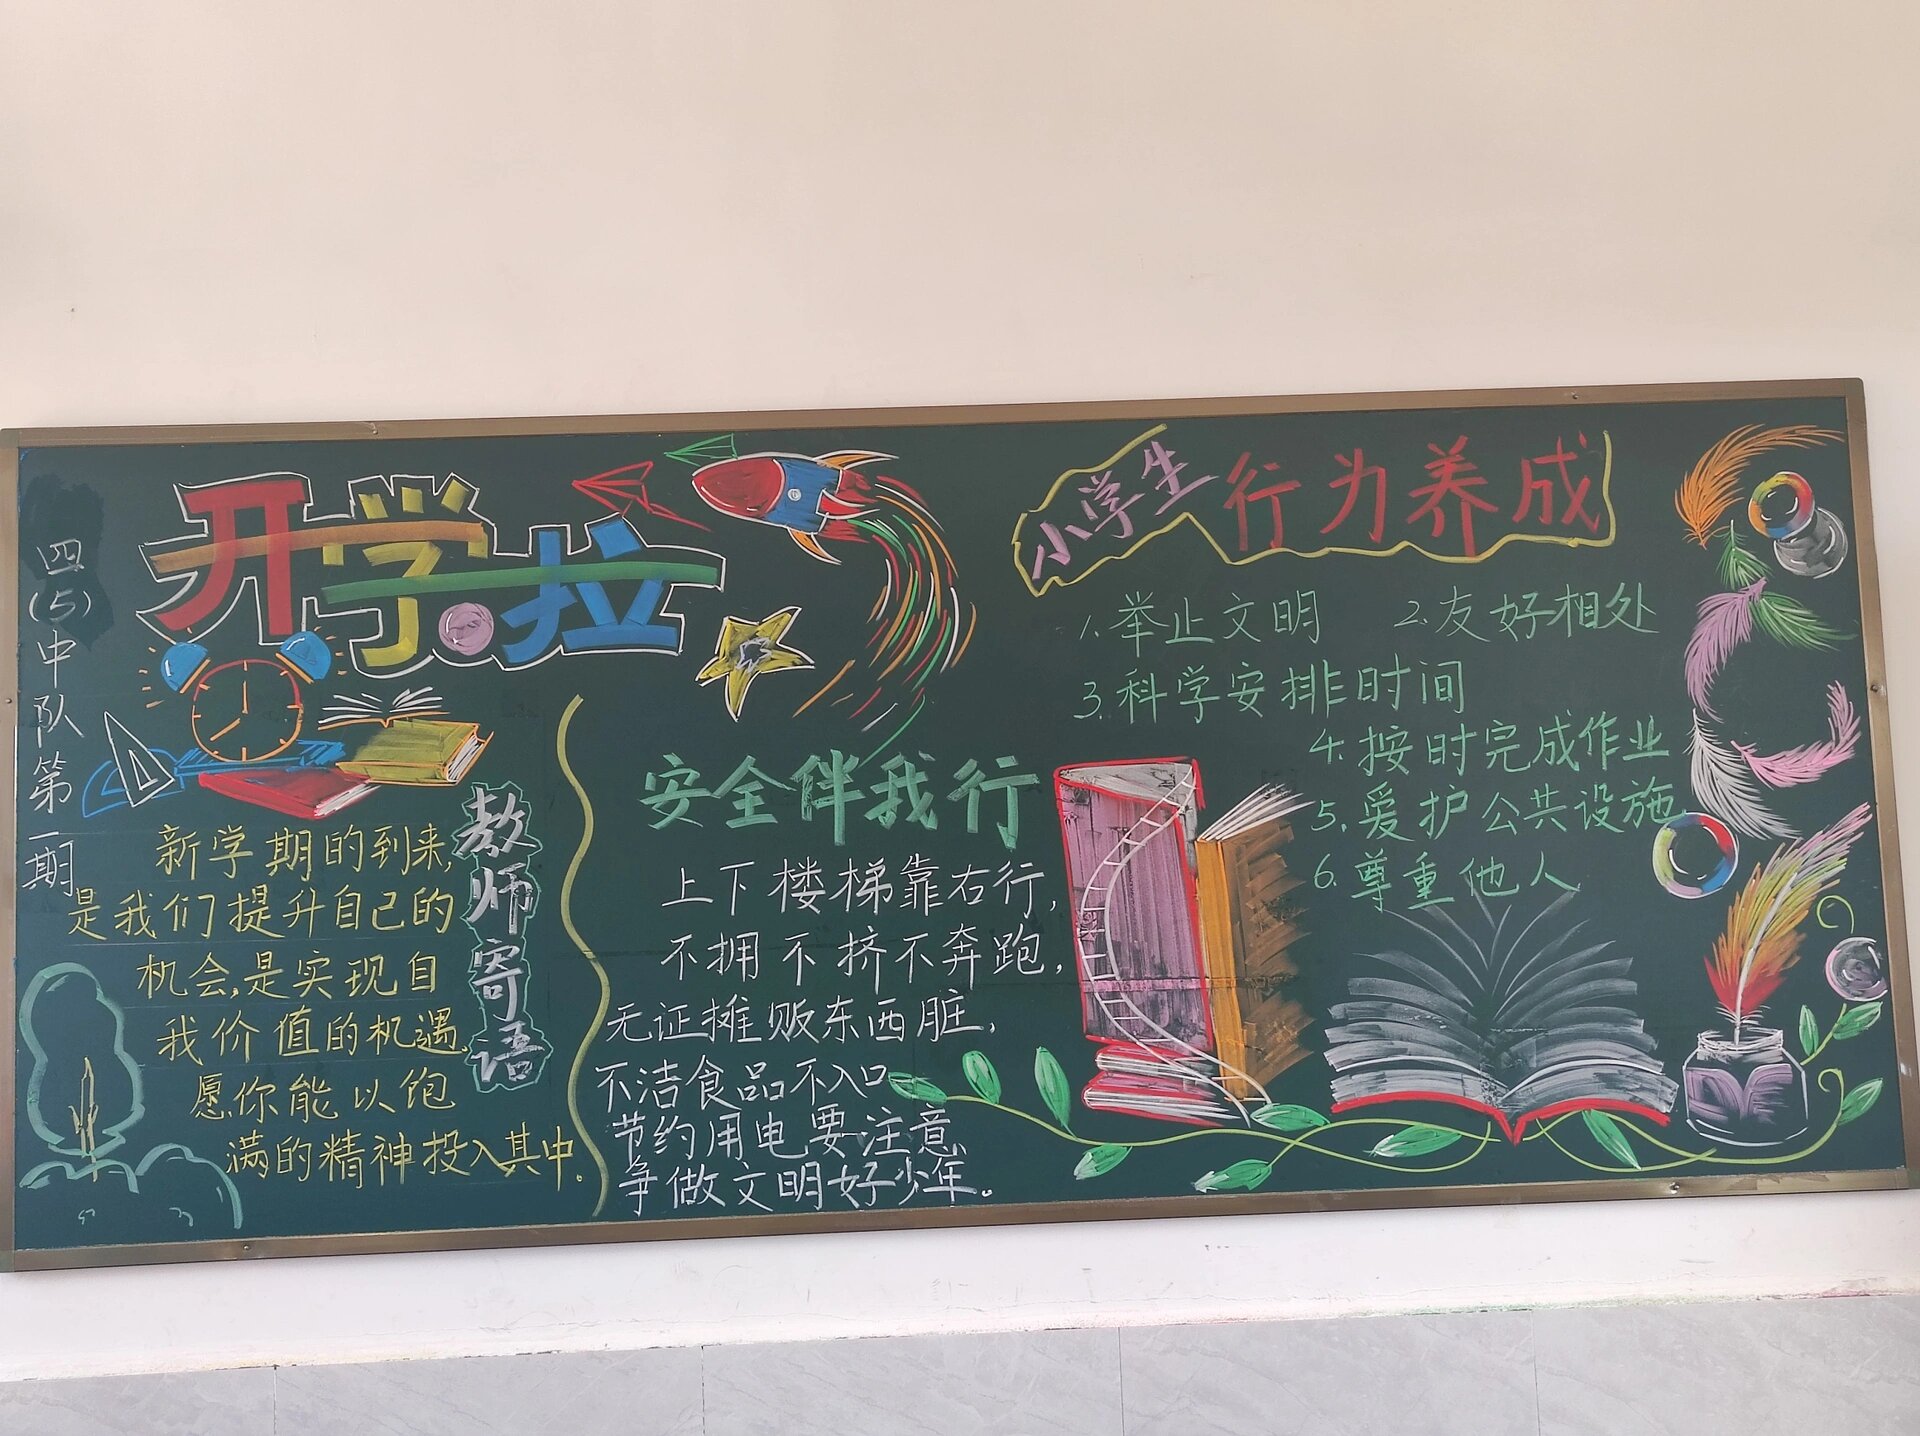 四(5)中队第一期
开学啦
新学期的到来,
是我们提升自己的
机会,是实现自
我价值的机遇.
愿你能以饱
满的精神投入其中.
教师寄语
安全伴我行
上下楼梯靠右行,
不拥不挤不奔跑,
无证摊贩东西脏,
不洁食品不入口
节约用电要注意,
争做文明好少年。
小学生行为养成
1.举止文明 2.友好相处
3.科学安排时间
4.按时完成作业
5.爱护公共设施
6.尊重他人